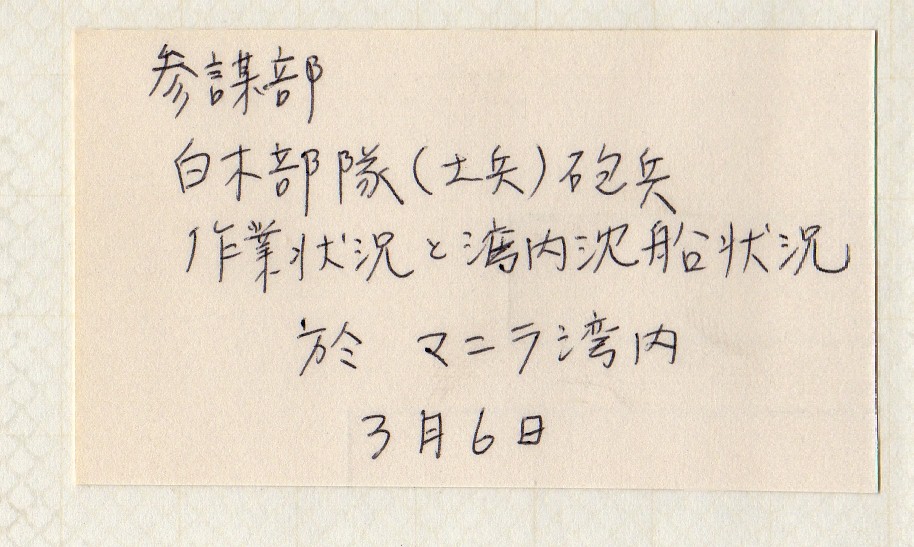 参謀部
白木部隊(士兵)砲兵
作業状況と湾内沈船状況
於 マニラ湾内
3月6日